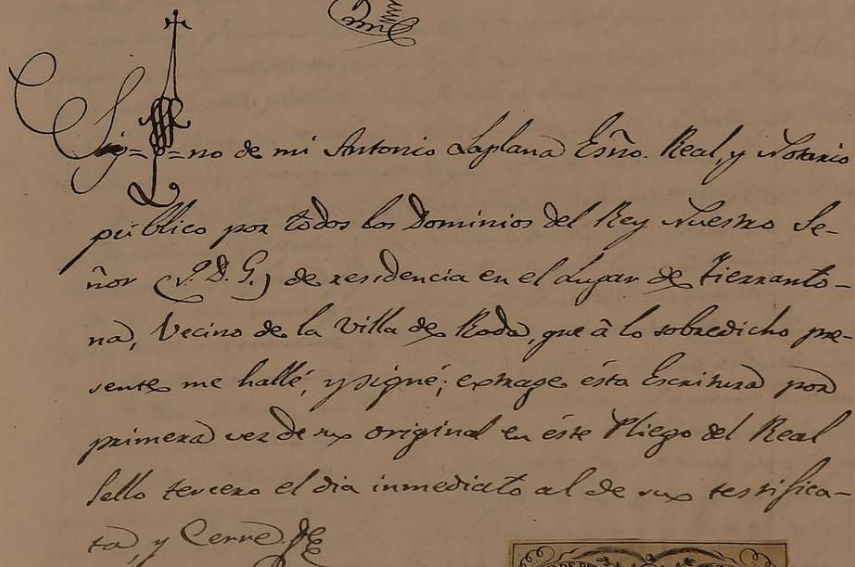 Sig=no de mi Antonio Laplana Esño. Real, y Notario
público por todos los Dominios del Rey Nuestro Se-
ñor (q. D. G.) de residencia en el Lugar de Tierranto-
na, Vecino de la Villa de Roda, que â lo sobredicho pre-
sente me hallé, y signé; extrage ésta Escritura por
primera vez de su original en éste Pliego del Real
Sello tercero el dia inmediato al de su testifica-
ta, y Cerré.